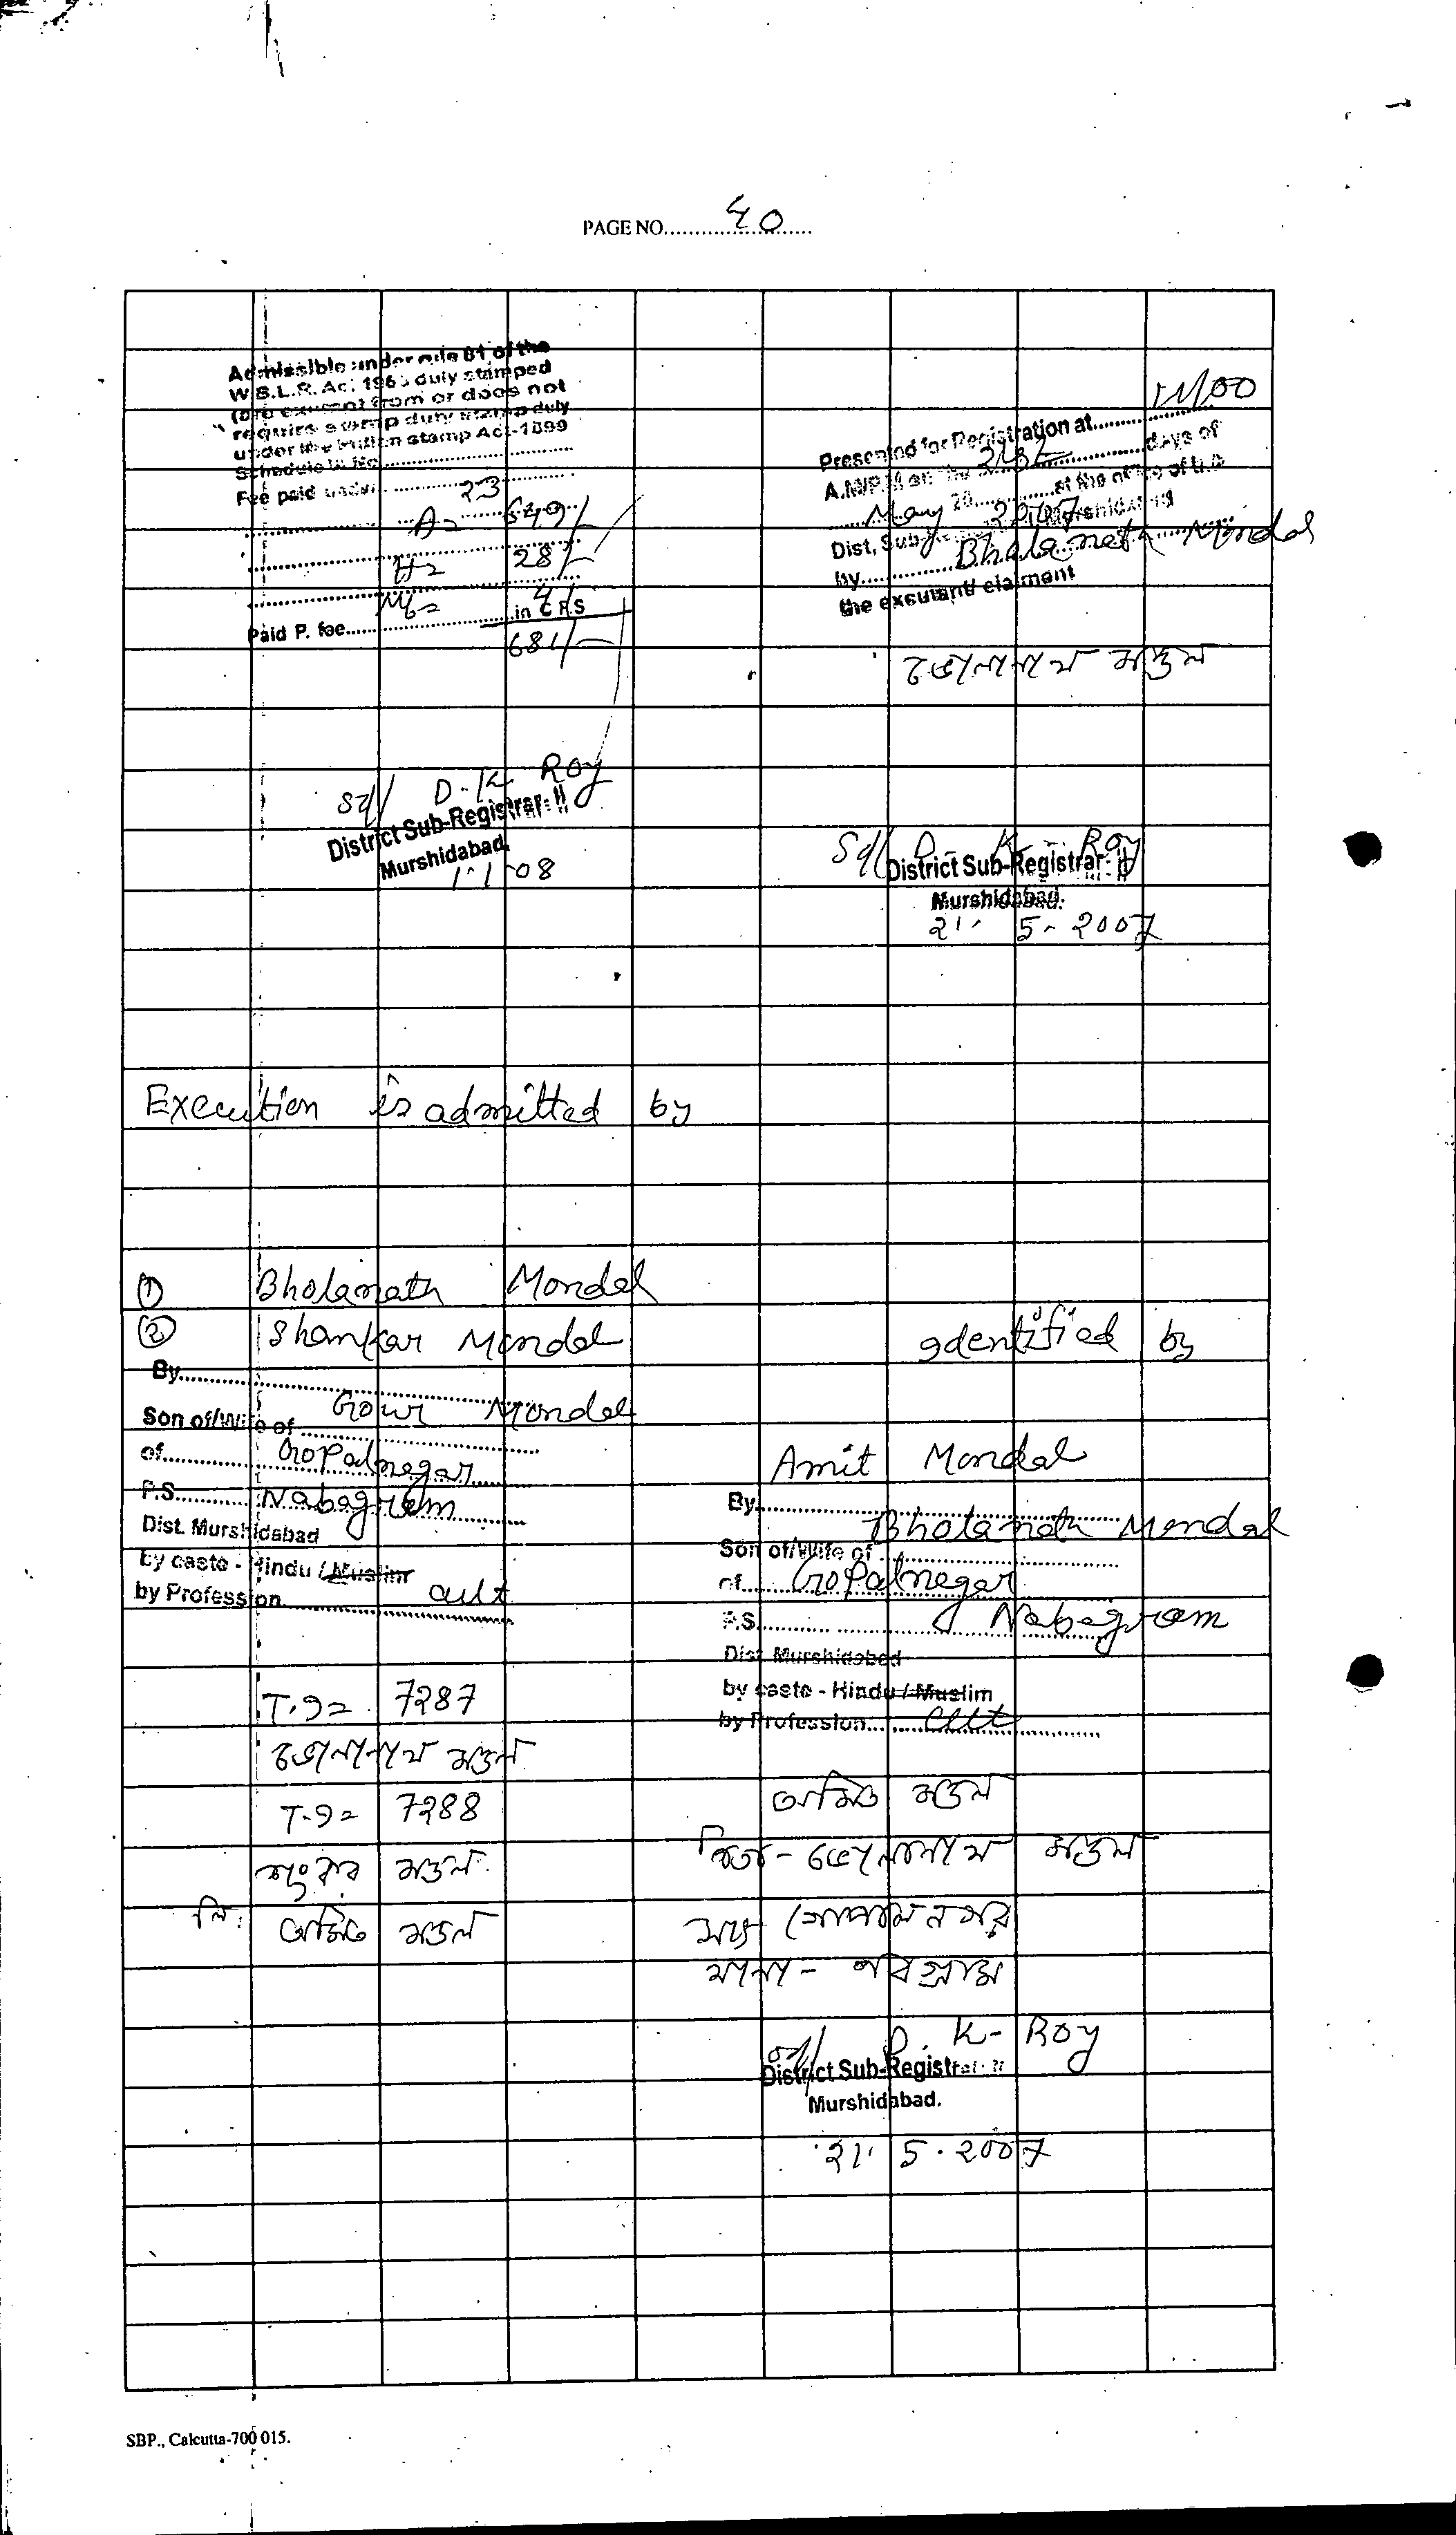 PAGE NO. 40
Admissible under rule 61 of the
W.B.L.R. Act 1965 duly stamped
(or) exempt from or does not
require stamp duty stamp duly
under the Indian stamp Act-1899
Schedule IA No.
Fee paid under 23
A= 649/-
H= 28/-
Mb= 4/-
Paid P. fee in C.F.S
681/-
Sd/ D. K Roy
District Sub-Registrar-II
Murshidabad.
1.1.08
Presented for Registration at 11/00
A.M/P.M on the 21st days of
May 20 2007 at the office of the
Dist. Sub Murshidabad
by Bholanath Mondal
the exeutant/ claiment
ভোলানাথ মণ্ডল
Sd/ D. K. Roy
District Sub-Registrar-II
Murshidabad.
21. 5. 2007
Execution is admitted by
① Bholanath Mondal
② Shankar Mondal
By
Son of/Wife of Gour Mondal
of Gopalnagar
P.S. Nabagram
Dist. Murshidabad
by caste - Hindu / Muslim
by Profession cult
T.9= 7287
ভোলানাথ মণ্ডল
T.9= 7288
শংকর মণ্ডল
লি: অমিত মণ্ডল
Identified by
Amit Mondal
By
Bholanath Mondal
Son of/Wife of
of Gopalnagar
P.S. Nabagram
Dist. Murshidabad
by caste - Hindu / Muslim
by Profession cult
অমিত মণ্ডল
পিতা- ভোলানাথ মণ্ডল
সাং গোপালনগর
থানা- নবগ্রাম
Sd/ D. K- Roy
District Sub-Registrar-II
Murshidabad.
21. 5. 2007
SBP., Calcutta-700 015.